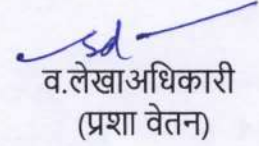 sd
व.लेखाअधिकारी
(प्रशा वेतन)